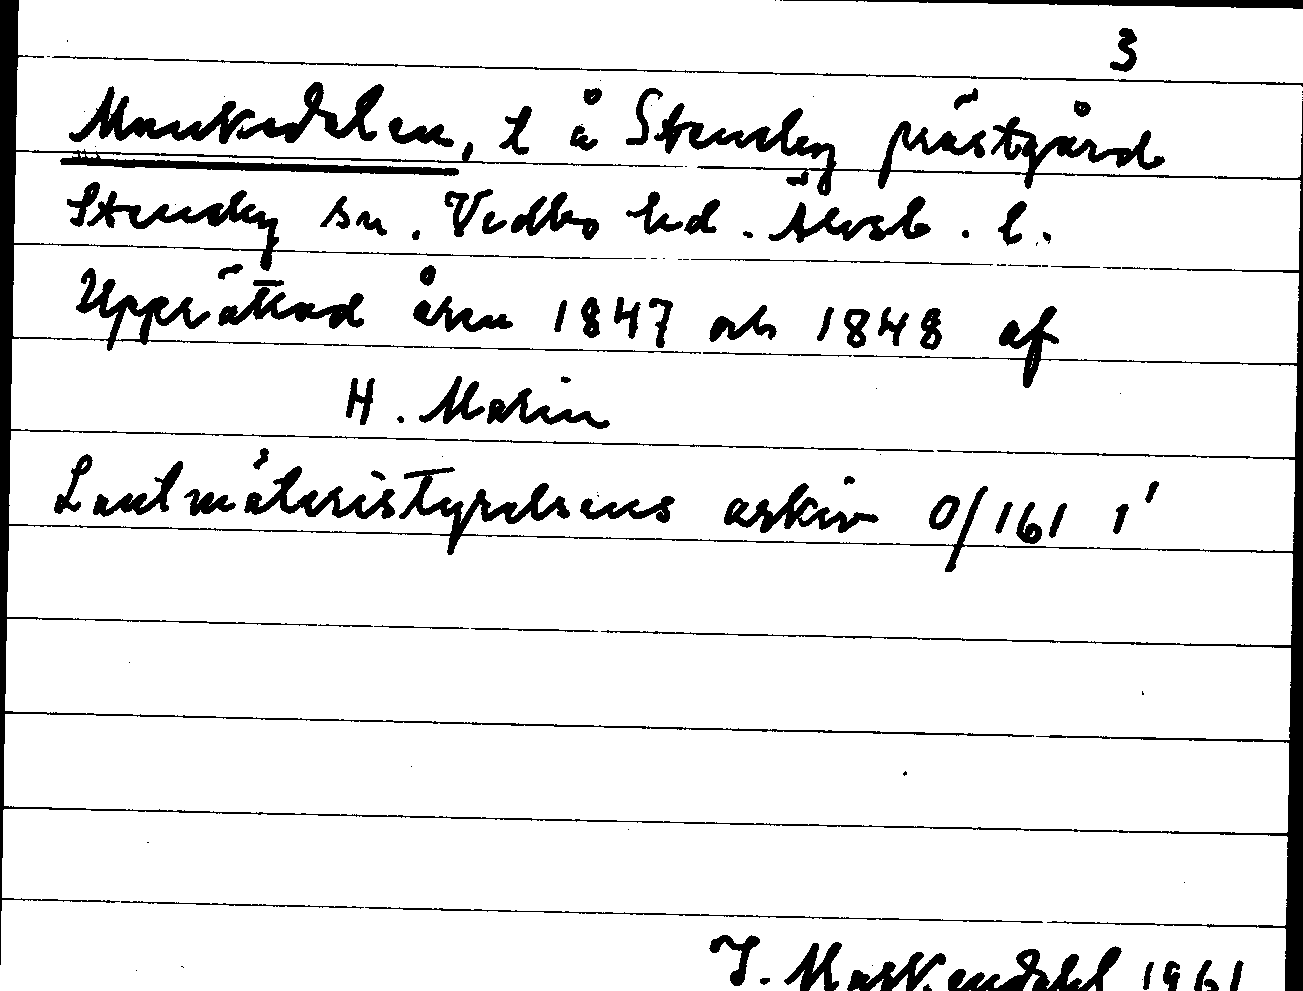 3
Munkedalen, t å Steneby prästgård
Steneby sn. Vedbo hd. Älvsb. l.
Upprättad åren 1847 och 1848 af
H. Marin
Lantmäteristyrelsens arkiv O/161 1'
I. Markendahl 1961